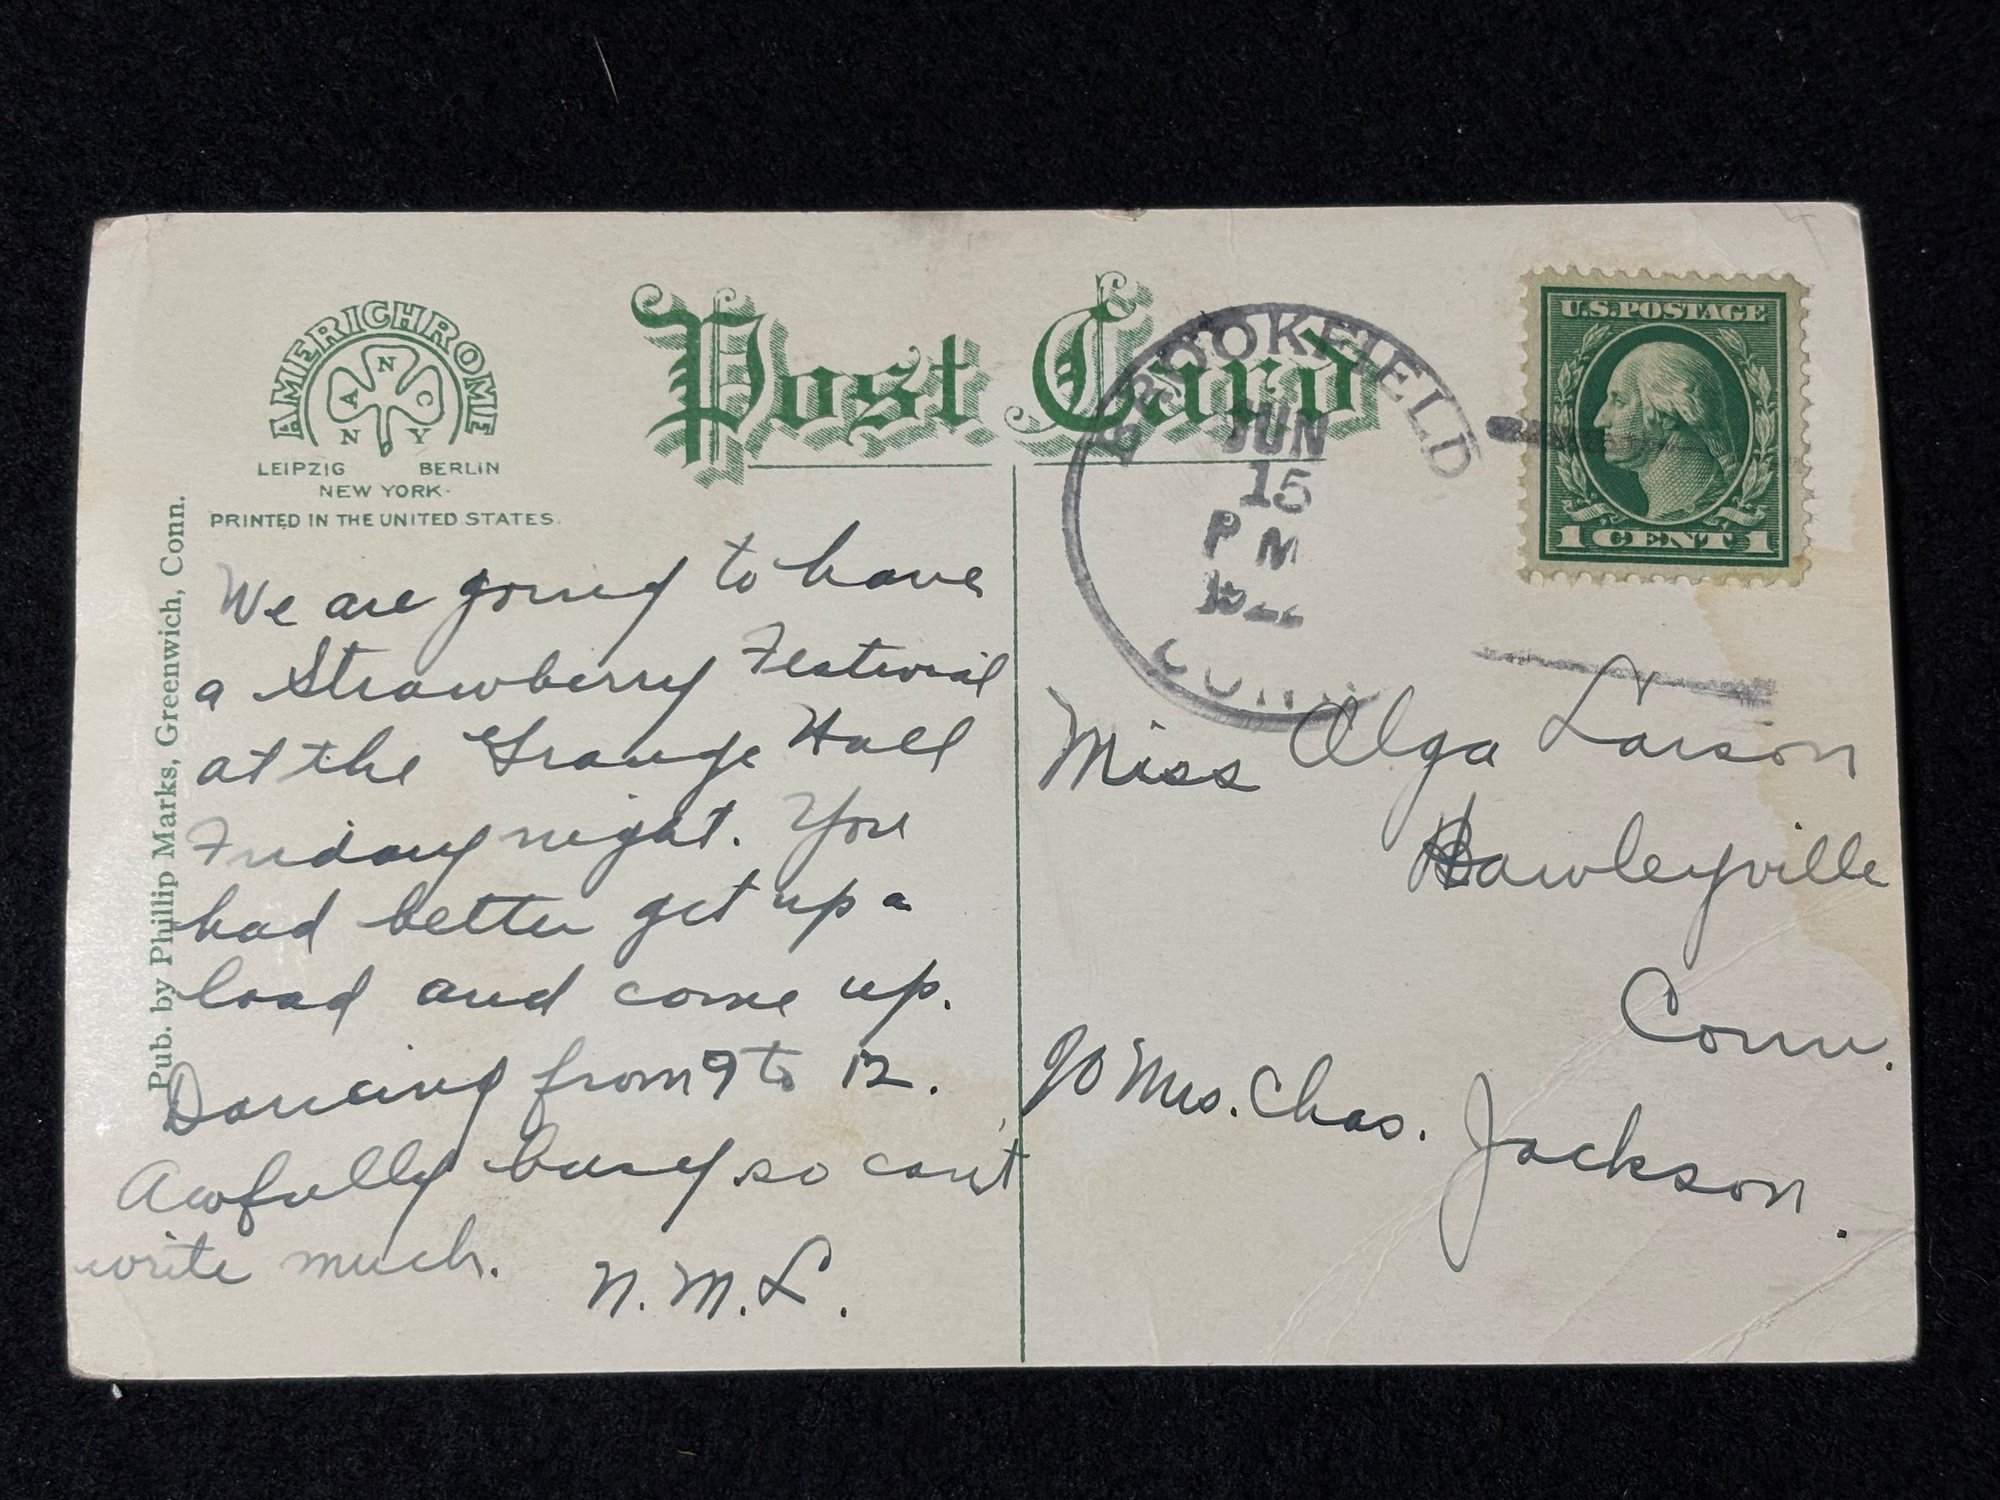 AMERICHROME
A N C
N Y
LEIPZIG BERLIN
NEW YORK.
PRINTED IN THE UNITED STATES.
Post Card
BROOKFIELD
JUN
15
PM
CONN
U.S. POSTAGE
1 CENT 1
Pub. by Phillip Marks, Greenwich, Conn.
We are going to have
a Strawberry Festival
at the Grange Hall
Friday night. You
had better get up a
load and come up.
Dancing from 9 to 12.
Awfully busy so can't
write much.
N.M.L.
Miss Olga Larson
Hawleyville
Conn.
c/o Mrs. Chas. Jackson.